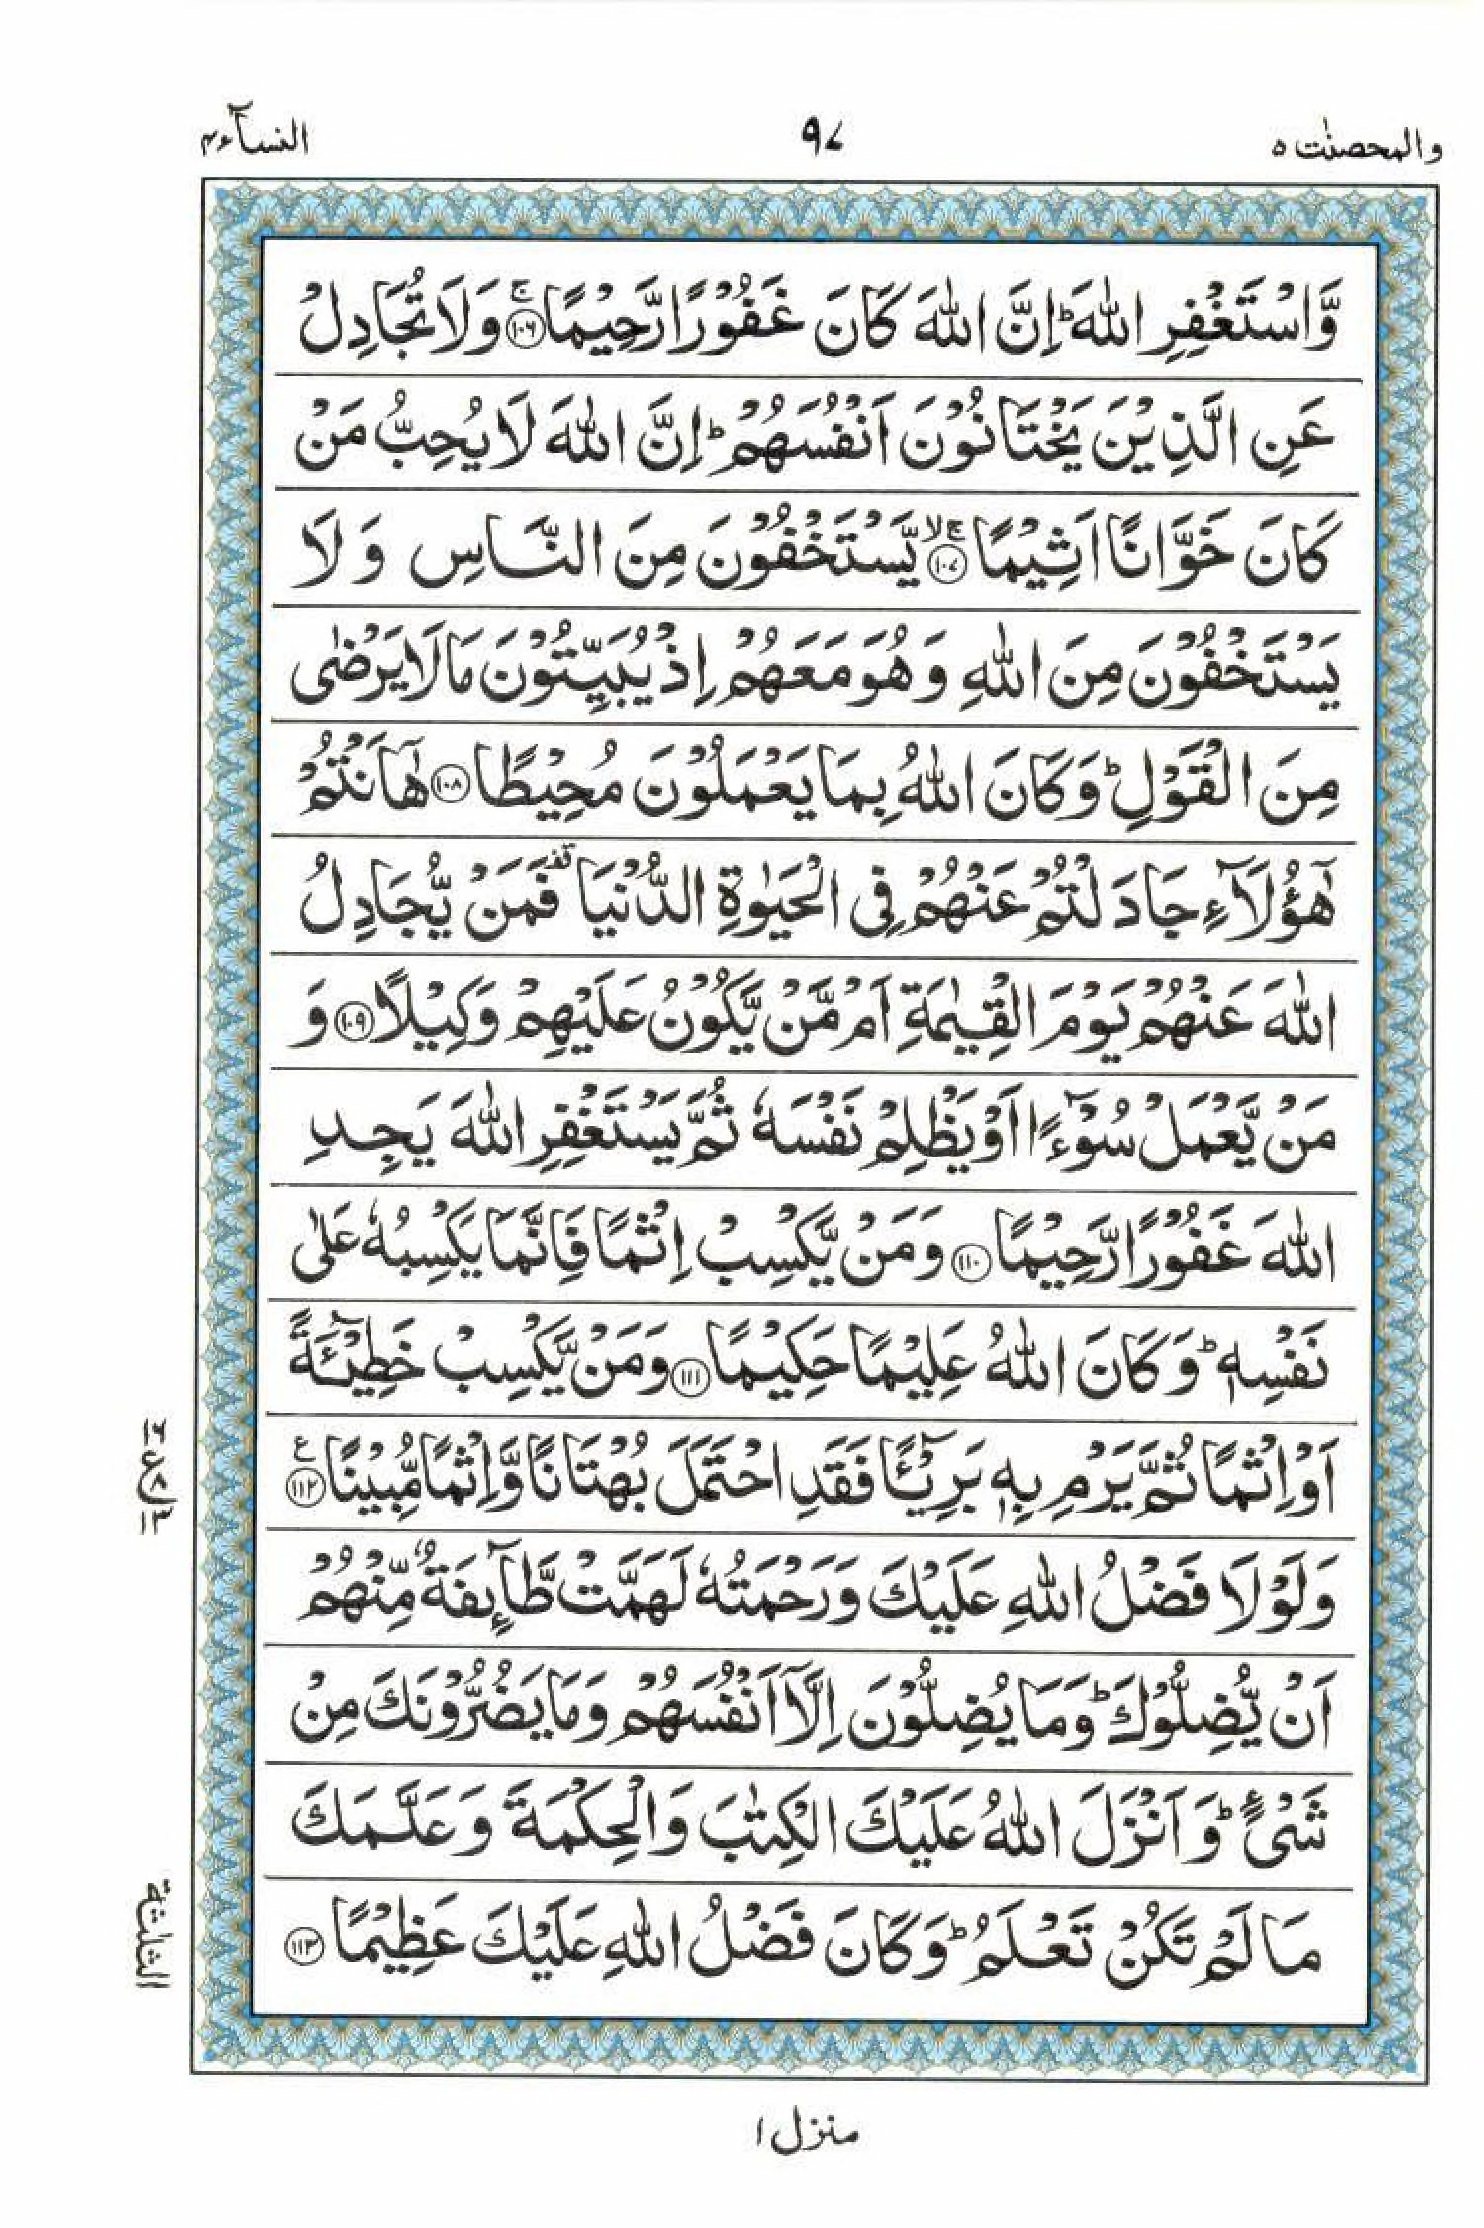 والمحصنٰت ٥
٩٧
النسآء ٤
وَّاسْتَغْفِرِ اللّٰهَ ؕ اِنَّ اللّٰهَ كَانَ غَفُوْرًا رَّحِيْمًا ۚ‏﴿۱۰۶﴾ وَلَا تُجَادِلْ
عَنِ الَّذِيْنَ يَخْتَانُوْنَ اَنْفُسَهُمْ ؕ اِنَّ اللّٰهَ لَا يُحِبُّ مَنْ
كَانَ خَوَّانًا اَثِيْمًا ۚۙ ﴿۱۰۷﴾ يَّسْتَخْفُوْنَ مِنَ النَّاسِ وَ لَا
يَسْتَخْفُوْنَ مِنَ اللّٰهِ وَ هُوَ مَعَهُمْ اِذْ يُبَيِّتُوْنَ مَا لَا يَرْضٰى
مِنَ الْقَوْلِ ؕ وَ كَانَ اللّٰهُ بِمَا يَعْمَلُوْنَ مُحِيْطًا ﴿۱۰۸﴾ هٰۤاَنْتُمْ
هٰۤؤُلَآءِ جَادَلْتُمْ عَنْهُمْ فِى الْحَيٰوةِ الدُّنْيَا ࣞ فَمَنْ يُّجَادِلُ
اللّٰهَ عَنْهُمْ يَوْمَ الْقِيٰمَةِ اَمْ مَّنْ يَّكُوْنُ عَلَيْهِمْ وَكِيْلًا ﴿۱۰۹﴾ وَ
مَنْ يَّعْمَلْ سُوْٓءًا اَوْ يَظْلِمْ نَفْسَهٗ ثُمَّ يَسْتَغْفِرِ اللّٰهَ يَجِدِ
اللّٰهَ غَفُوْرًا رَّحِيْمًا ﴿۱۱۰﴾ وَ مَنْ يَّكْسِبْ اِثْمًا فَاِنَّمَا يَكْسِبُهٗ عَلٰى
نَفْسِهٖ ؕ وَ كَانَ اللّٰهُ عَلِيْمًا حَكِيْمًا ﴿۱۱۱﴾ وَ مَنْ يَّكْسِبْ خَطِيْٓئَةً
اَوْ اِثْمًا ثُمَّ يَرْمِ بِهٖ بَرِيْٓئًا فَقَدِ احْتَمَلَ بُهْتَانًا وَّ اِثْمًا مُّبِيْنًا ﴿۱۱۲﴾ ع
وَ لَوْ لَا فَضْلُ اللّٰهِ عَلَيْكَ وَ رَحْمَتُهٗ لَهَمَّتْ طَّآئِفَةٌ مِّنْهُمْ
اَنْ يُّضِلُّوْكَ ؕ وَ مَا يُضِلُّوْنَ اِلَّاۤ اَنْفُسَهُمْ وَ مَا يَضُرُّوْنَكَ مِنْ
شَىْءٍ ؕ وَ اَنْزَلَ اللّٰهُ عَلَيْكَ الْكِتٰبَ وَ الْحِكْمَةَ وَ عَلَّمَكَ
مَا لَمْ تَكُنْ تَعْلَمُ ؕ وَ كَانَ فَضْلُ اللّٰهِ عَلَيْكَ عَظِيْمًا ﴿۱۱۳﴾
الثلثة
منزل ١